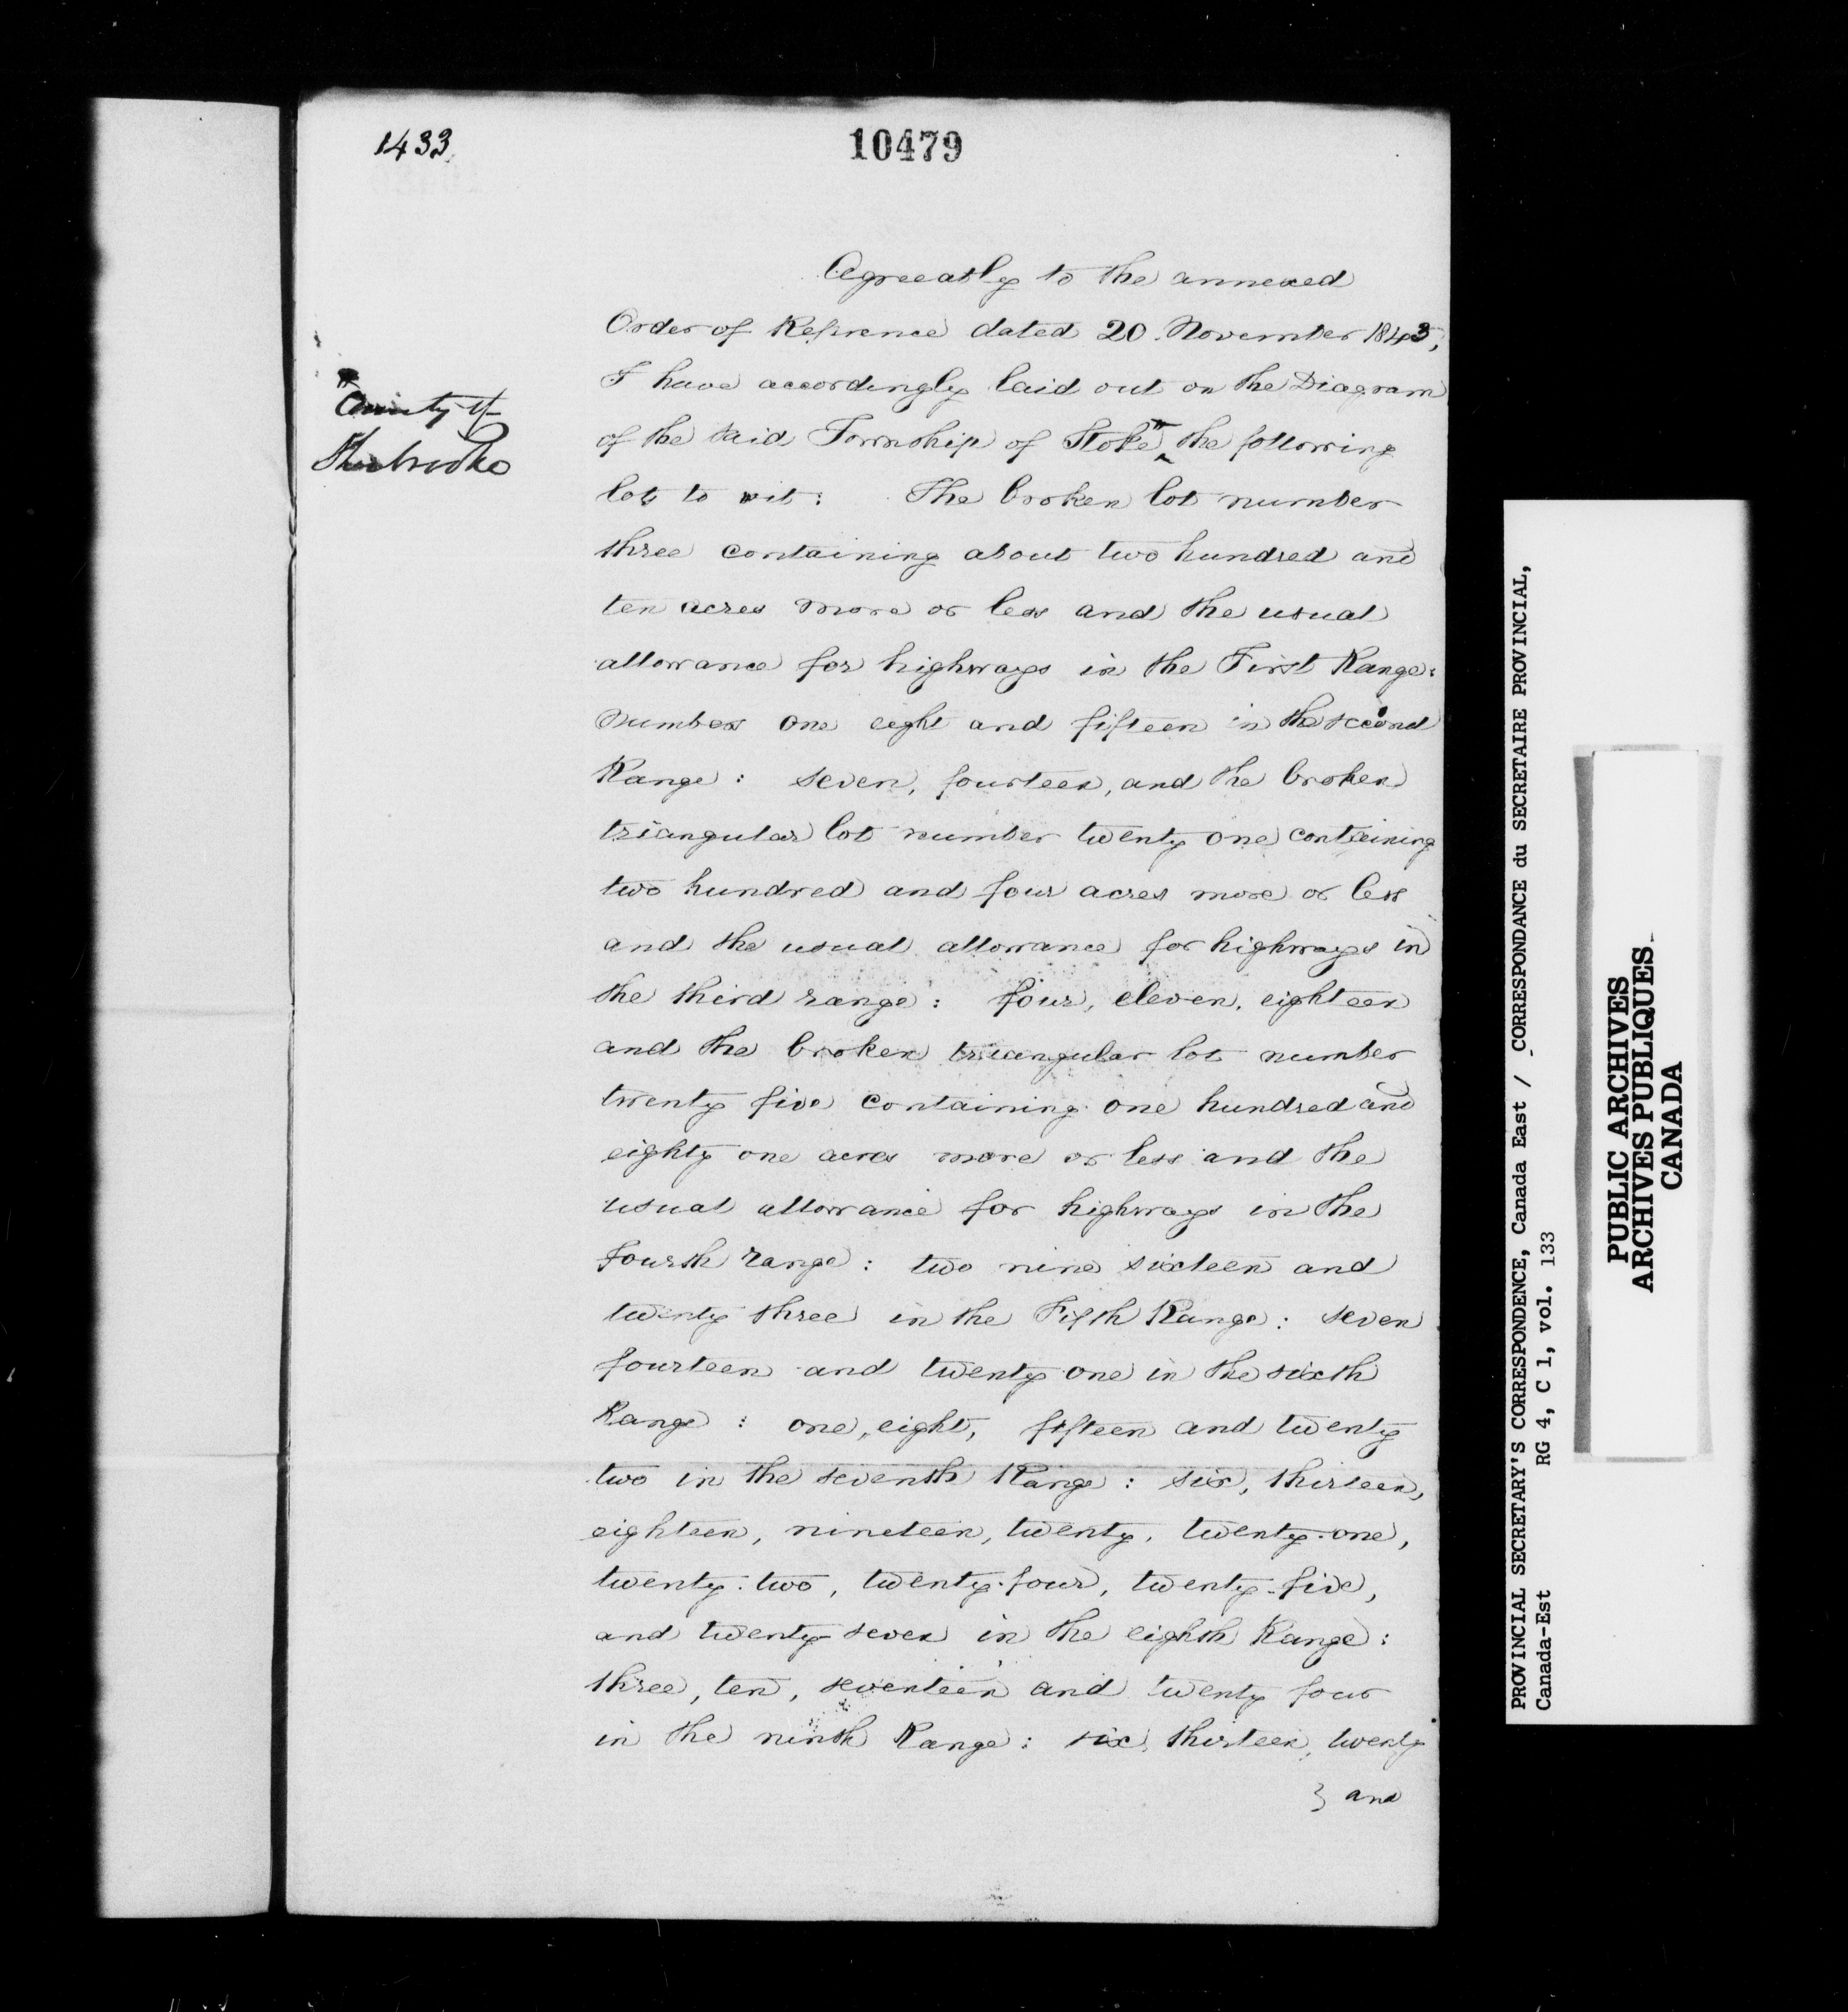 1433
10479
Agreeably to the annexed
Order of Refrence dated 20 November 1843,
I have accordingly laid out on the Diagram
of the said Township of Stoke the following
County of
Sherbrooke
lots to wit: The broken lot number
three containing about two hundred and
ten acres more or less and the usual
allowance for highways in the First Range:
Numbers One eight and fifteen in the second
Range: seven, fourteen, and the broken
triangular lot number twenty one containing
two hundred and four acres more or less
and the usual allowance for highways in
the third range: four, eleven, eighteen
and the broken triangular lot number
twenty five containing one hundred and
eighty one acres more or less and the
usual allowance for highways in the
fourth range: two nine sixteen and
twenty three in the Fifth Range: seven
fourteen and twenty one in the sixth
Range: one, eight, fifteen and twenty
two in the seventh Range: six, thirteen,
eighteen, nineteen, twenty, twenty-one,
twenty-two, twenty-four, twenty-five,
and twenty-seven in the eighth Range:
three, ten, seventeen and twenty four
in the ninth Range: six, thirteen, twenty
and
PROVINCIAL SECRETARY'S CORRESPONDENCE, Canada East / CORRESPONDANCE du SECRETAIRE PROVINCIAL,
Canada-Est RG 4, C 1, vol. 133
PUBLIC ARCHIVES
ARCHIVES PUBLIQUES
CANADA